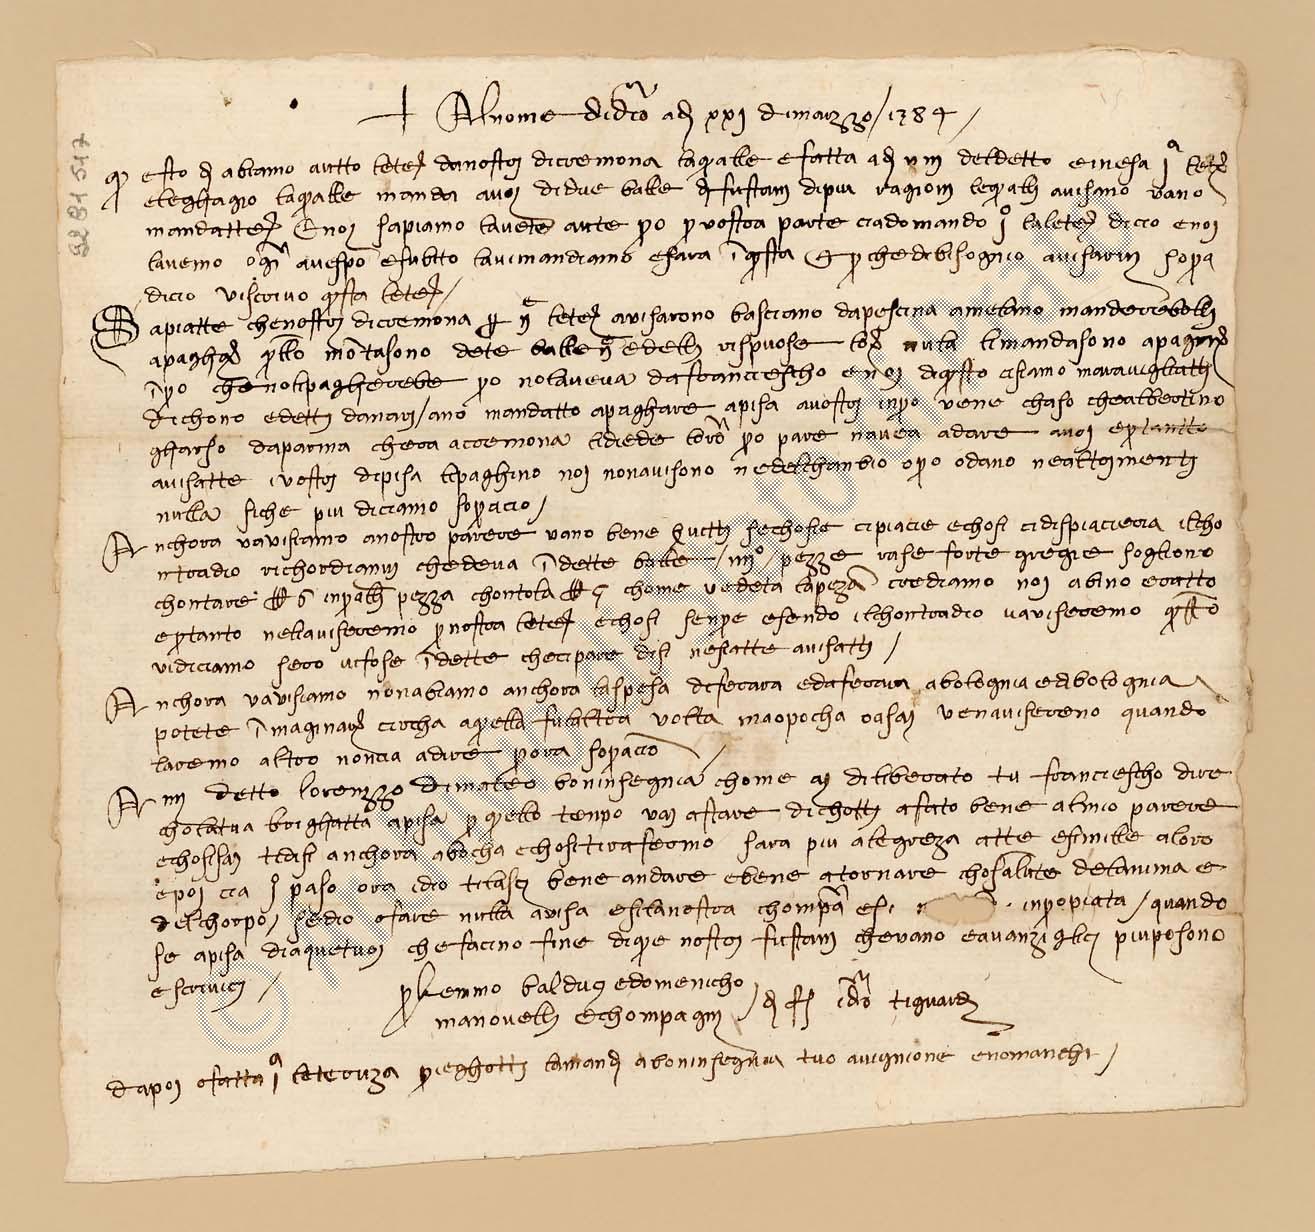 Al nome di dio adj xxj di marzzo / 1384 /
esto dj abiamo autto letera da nostri di cremona la quale e fatta adj viij del detto e in esa j.a letera
e leghagio la quale manda a voi di due balle di fustani di piu ragioni le quali avisano vano
mandatte e noi sapiamo l avette aute po per vostra parte cia domando j.o la letera dicio e noi
l avemo e subito la vi mandiamo e sara in questa che di bisognio avisarvi sopra
dicio vi scrivo questa letera /
Sapiatte che nostri di cremona per letera avisarono basciano da pescina a melano manderebolli
a paghare quello montasono dete balle ed elli rispuose loro li mandasono a pagare
in po che no li pagherebe po no l aveva da franciescho e noi di questo ci siamo maravigliatti
dichono e detti danari / ano mandatto a paghare a pisa a vostri in po vene chaso che albertino
gharso da parma che era a cremona li diede loro po pare n avea a dare a voi e per tantto
avisatte i vostri di pisa li paghino noi non avisono ne del chanbio o po o dano ne altrimenti
nulla siche piu diciamo sopra cio /
Anchora v avisiamo a nostro parere vano bene tutti se chosi e ci piacie e chosi ci dispiacierea il cho
ntradio richordianvi che deva in dette balle / iiij.o / pezze rase forte gregie sogliono
chontare pezza chontola chome vedeta la pezza crediamo noi abino eratto
e per tanto ne l aviseremo per nostra letera e chosi senpe esendo il chontradio v aviseremo questo
vi diciamo sero vi fose in dette che ci pare di si ne siatte avisatti /
Anchora v avisiamo non abiamo anchora la spesa di ferara e da ferara a bolognia ed a bolognia
potete imaginare circha a quella fu l altra volta ma o pocha o asai ve n avisereno quando
l aremo altro non cia a dire per ora sopra cio /
A mj detto lorenzzo di mateo boninsegnia chome ai diliberato tu franciescho dire
cho la tua brighatta a pisa per quello tenpo vai a stare di chotti a fato bene al mio parere
e chosi sai ti disi anchora a bocha e chosi ti rafermo sara piu alegreza a tte e simile a loro
e poi cia j.o paso ora idio ti lasci bene andare e bene atornare cho salute de l anima e
del chorpo / se di o a fare nulla avisa e si la nostra chompa e si inpropiata / quando
se a pisa di a quetuoi che facino fine di que nostri fustani che vano e avanzi gl ci piu posono
e scrivici /
per lemmo balduci e domenicho
manovelli e chompagni / di idio ti guardi
dapoi o fatta j.a leteruza per ieghotti la mandi a boninsegnia tuo a vignione e no manchi /